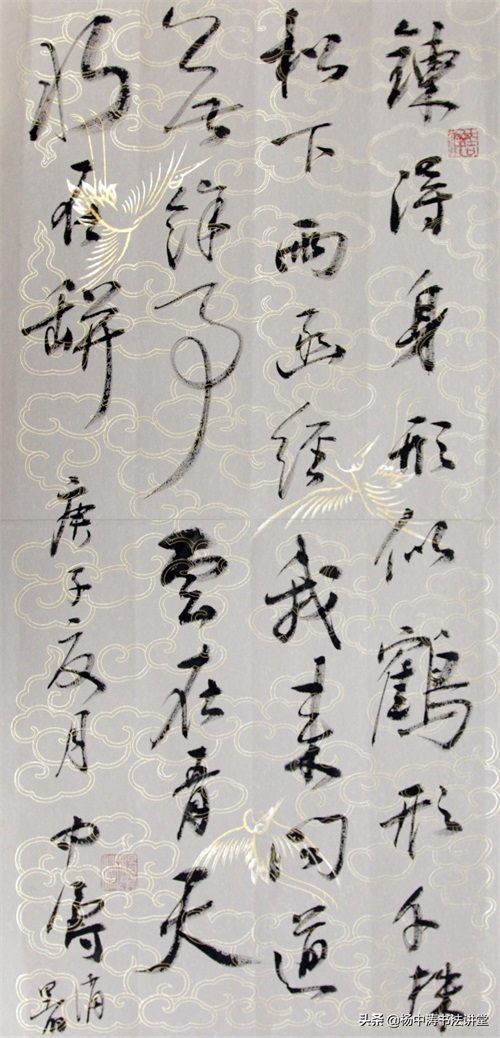 鍊得身形似鶴形千株
松下兩函經我來問道
無餘事雲在青天
水在缾
庚子亥月中
头条 @杨中涛书法讲堂